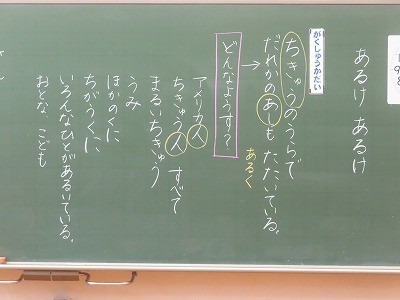 あるけ あるけ
がくしゅうかだい
ちきゅうのうらで
だれかのあしも たたいている。
あるく
どんなようす?
アメリカ人
ちきゅう人 すべて
まるいちきゅう
うみ
ほかのくに
ちがうくに
いろんなひとがあるいている。
おとな こども